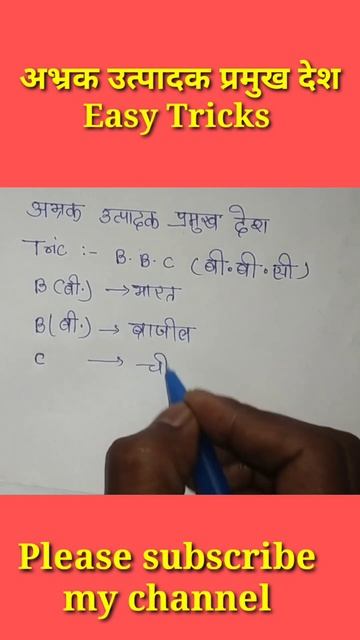 अभ्रक उत्पादक प्रमुख देश
Easy Tricks
अभ्रक उत्पादक प्रमुख देश
Tric :- B. B. C (बी.बी.सी)
B (बी.) → भारत
B (बी.) → ब्राजील
C → ची
Please subscribe
my channel